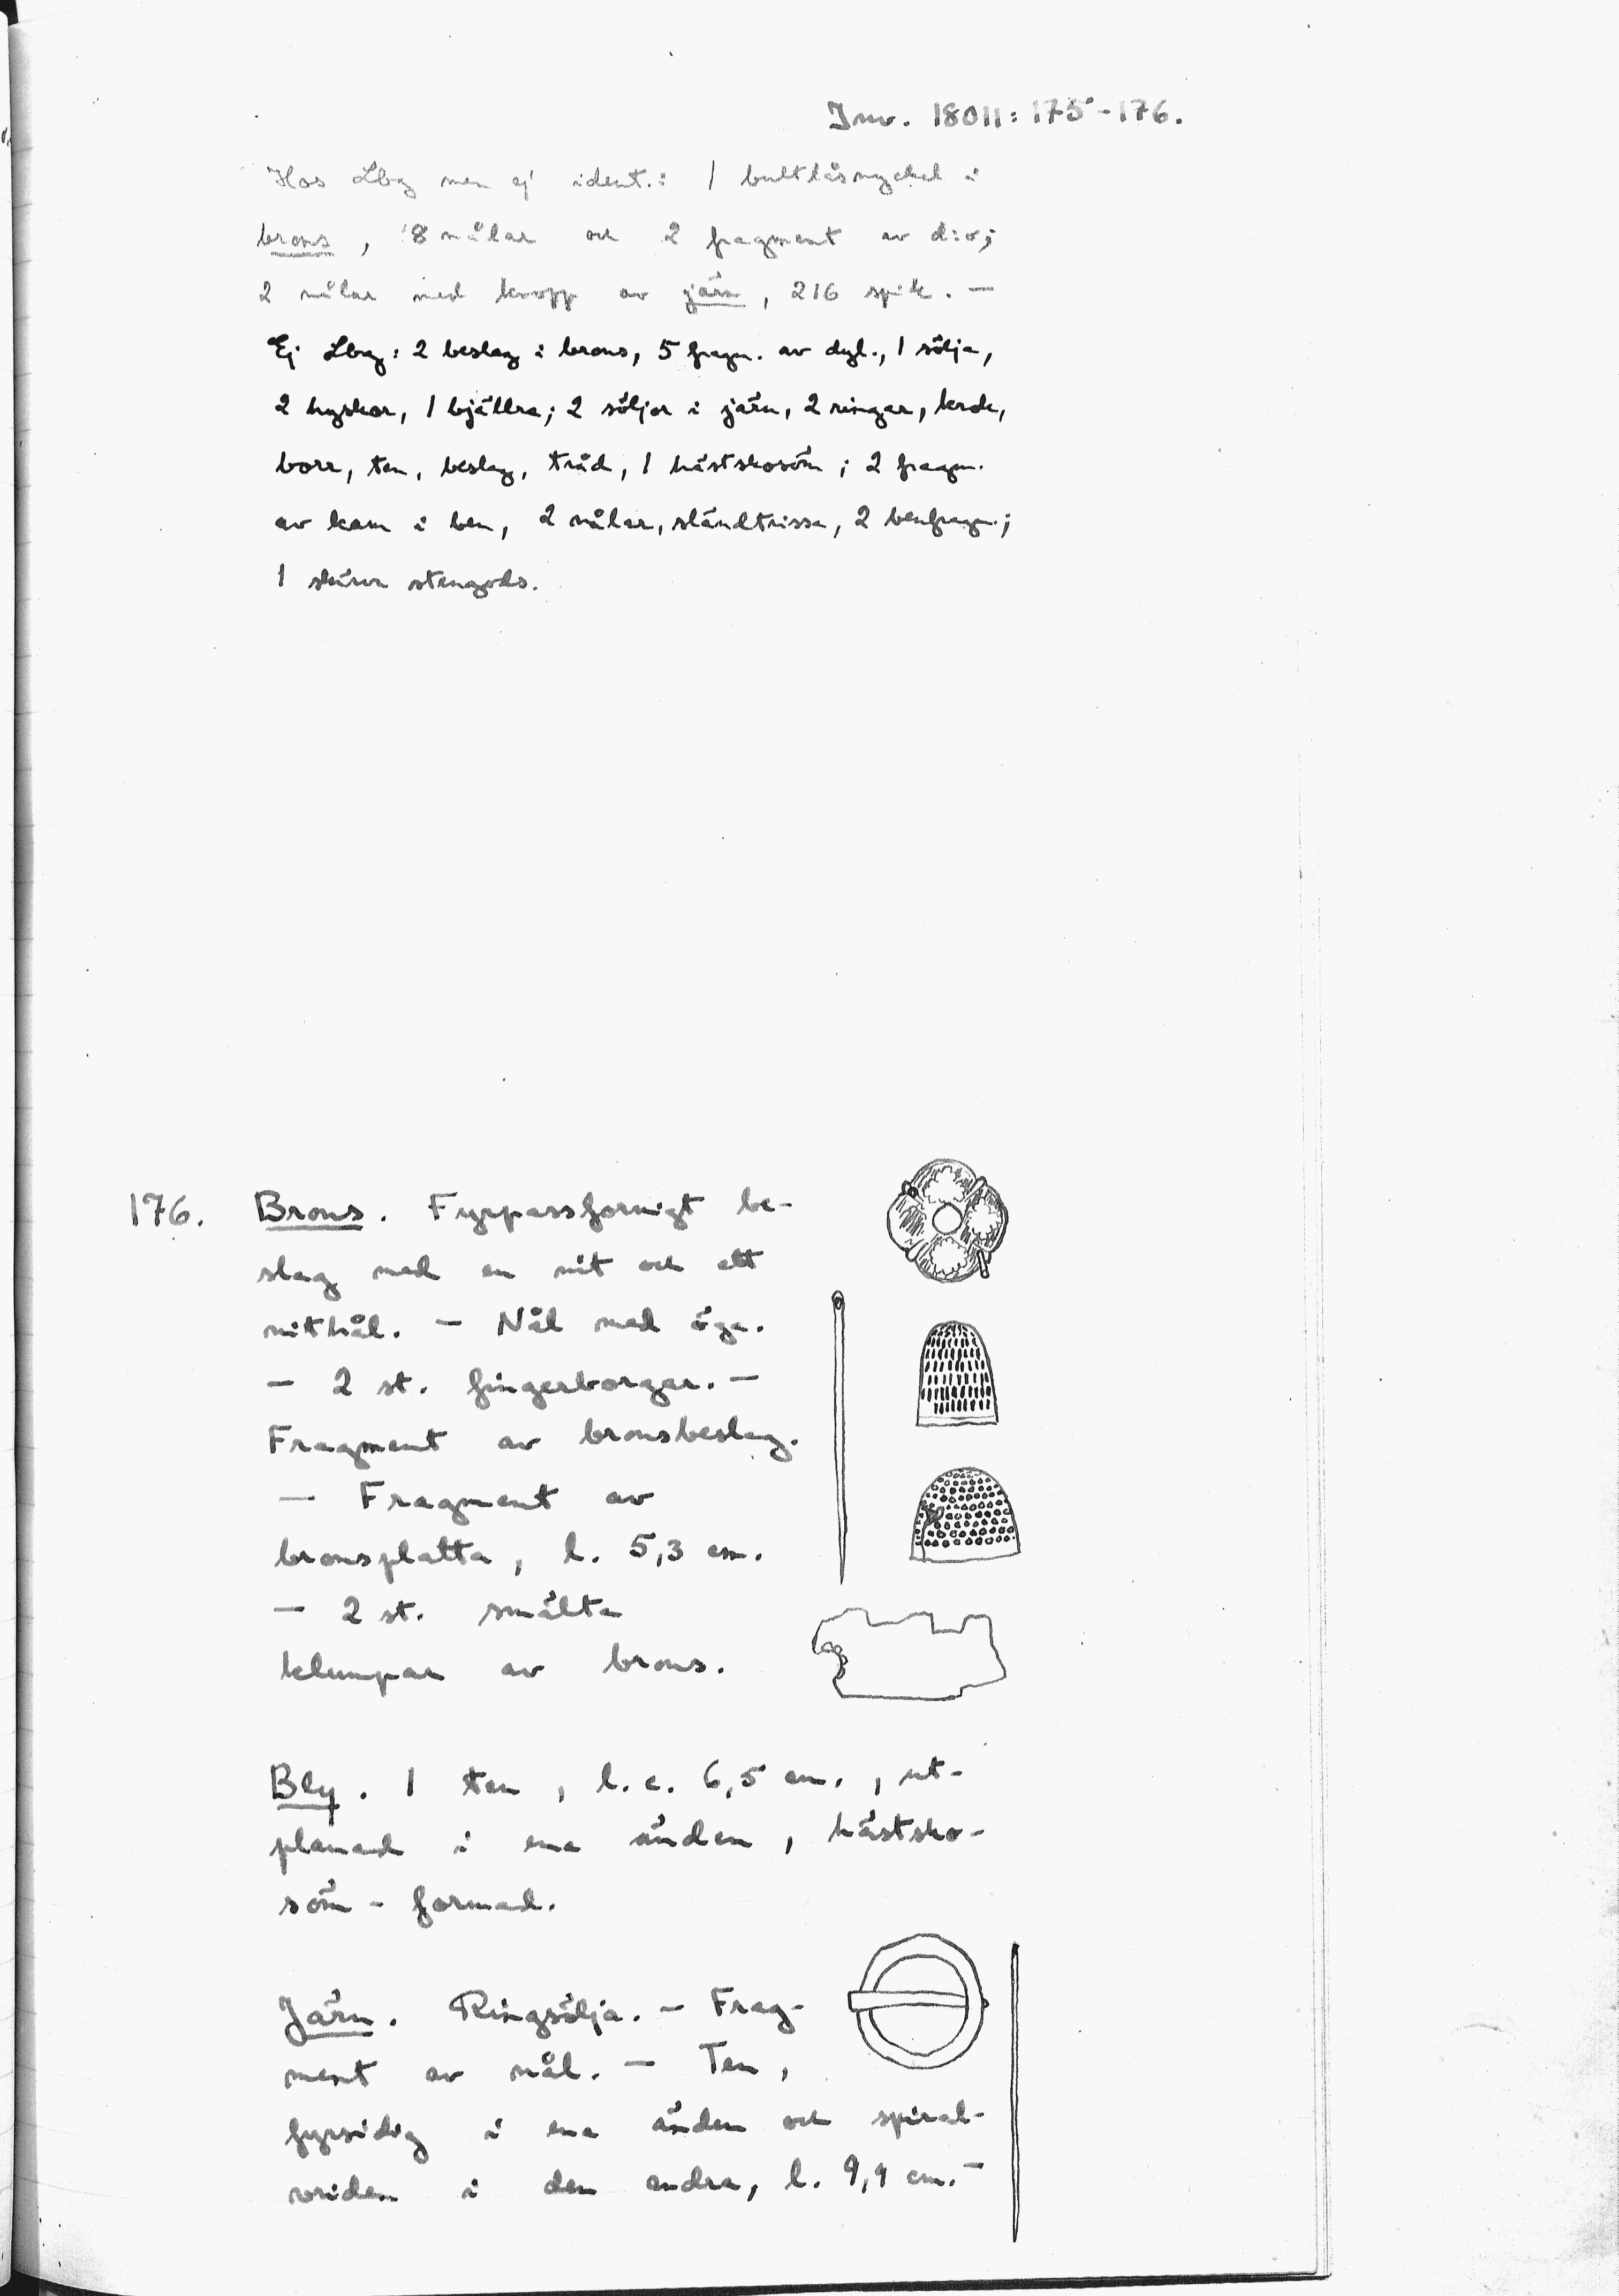 Inv. 18011: 175-176.
Hos Lbg men ej ident.: 1 bultlåsnyckel i
brons, 8 nålar och 2 fragment av div;
2 nålar med knopp av järn, 216 spik. —
Ej Lbg: 2 beslag i brons, 5 fragm. av dyl., 1 sölja,
2 hyskor, 1 bjällra; 2 söljor i järn, 2 ringar, krok,
borr, ten, beslag, tråd, 1 hästskosöm; 2 fragm.
av kam i ben, 2 nålar, sländtrissa, 2 benfragm.;
1 skärva stengods.
176. Brons. Fyrpassformigt be-
slag med en nit och ett
nithål. — Nål med öga.
— 2 st. fingerborgar. —
Fragment av bronsbeslag.
— Fragment av
bronsplatta, l. 5,3 cm.
— 2 st. smälta
klumpar av brons.
Bly. 1 ten, l. c. 6,5 cm., ut-
planad i ena änden, hästsko-
söm-formad.
Järn. Ringsölja. — Frag-
ment av nål. — Ten,
fyrsidig i ena änden och spiral-
vriden i den andra, l. 9,9 cm. —